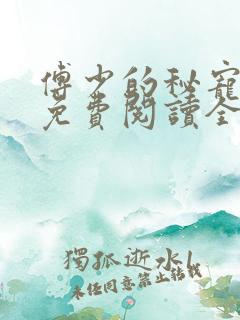 傅少的秘寵
免費閱讀全
獨孤逝水l
未经同意禁止转载